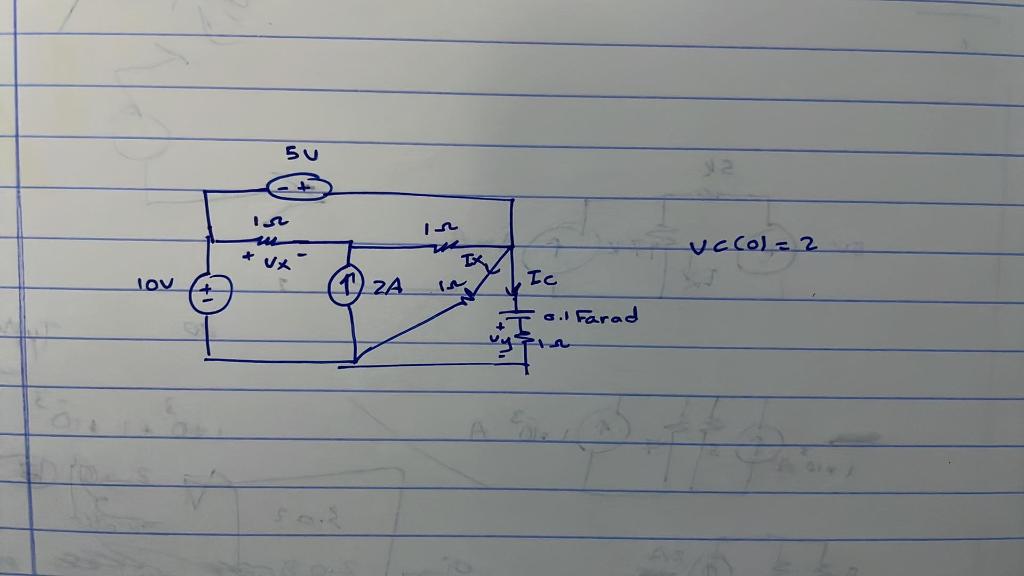 5V
- +
1Ω 1Ω
+ Vx - Ix VC(0) = 2
10V + - 2A 1Ω Ic
0.1 Farad
+ Vy - 1Ω